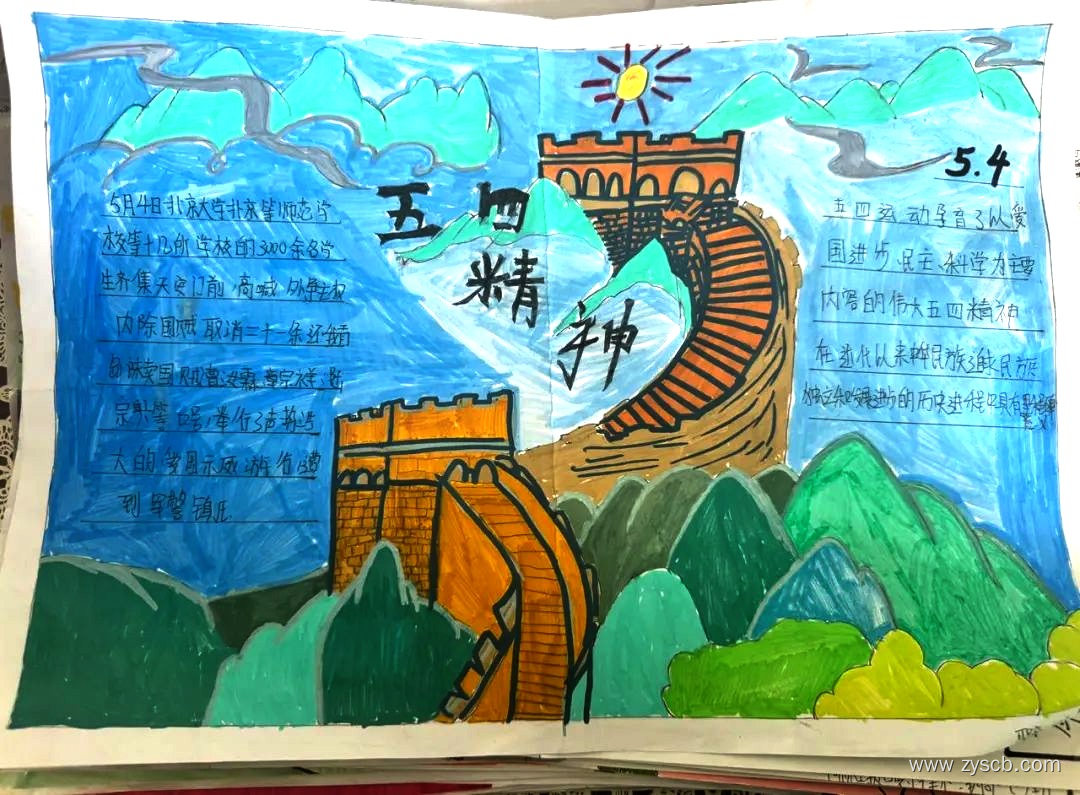 五四
精
神
5.4
5月4日北京大学北京等师范学
校等十几所学校的3000余名学
生齐集天安门前高喊外争主权
内除国贼取消二十一条还我青
岛诛卖国贼曹汝霖章宗祥
宗舆等口号举行了声势浩
大的学界示威游行遭
到军警镇压
五四运动孕育了以爱
国进步民主科学为主要
内容的伟大五四精神
在近代以来中华民族追求民族
独立和发展进步的历史进程中具有
www.zyscb.com